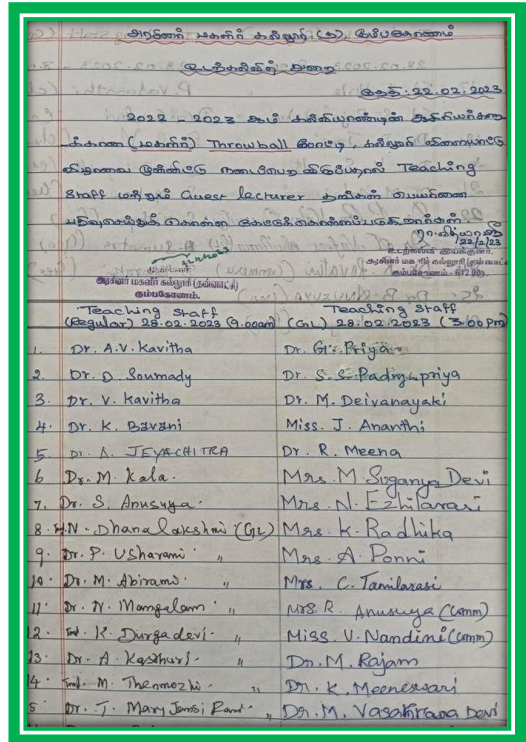 அரசினர் மகளிர் கல்லூரி (த), கும்பகோணம்
உடற்கல்வித் துறை
தேதி : 22.02.2023
2022 - 2023 ஆம் கல்வியாண்டின் ஆசிரியர்களு
க்கான (மகளிர்) Throwball போட்டி, கல்லூரி விளையாட்டு
விழாவை முன்னிட்டு நடைபெற இருப்பதால் Teaching
Staff மற்றும் Guest lecturer தங்கள் பெயரினை
பதிவுசெய்துக் கொள்ள கேட்டுக்கொள்ளப்படுகிறார்கள்.
22/2/23
உடற்கல்வி இயக்குனர்
முதல்வர்
அரசினர் மகளிர் கல்லூரி (தன்னாட்சி)
கும்பகோணம்.
அரசினர் மகளிர் கல்லூரி (தன்னாட்சி)
கும்பகோணம் - 612 001
Teaching Staff (Regular) 28.02.2023 (9.00am)
Teaching Staff (GL) 28.02.2023 (3.00 Pm)
1. Dr. A.V. Kavitha Dr. G. Priya
2. Dr. D. Soumady Dr. S. S. Padmapriya
3. Dr. V. Kavitha Dr. M. Deivanayaki
4. Dr. K. Bavani Miss. J. Ananthi
5 Dr. A. JEYACHITRA Dr. R. Meena
6 Dr. M. Kala. Mrs. M. Suganya Devi
7. Dr. S. Anusuya. Mrs. N. Ezhilarasi
8. N. Dhanalakshmi (GL) Mrs. K. Radhika
9. Dr. P. Usharani " Mrs. A. Ponni
10. Dr. M. Abirami. " Mrs. C. Tamilarasi
11. Dr. N. Mangalam " Mrs. R. Anusuya (Comm)
12. K. Durgadevi. " Miss. V. Nandini (Comm)
13. Dr. A. Kasthuri. " Dr. M. Rajam
14. M. Thenmozhi. " Dr. K. Meeneswari
5 Dr. T. Mary Jansi Rani. " Dr. M. Vasakirana Devi